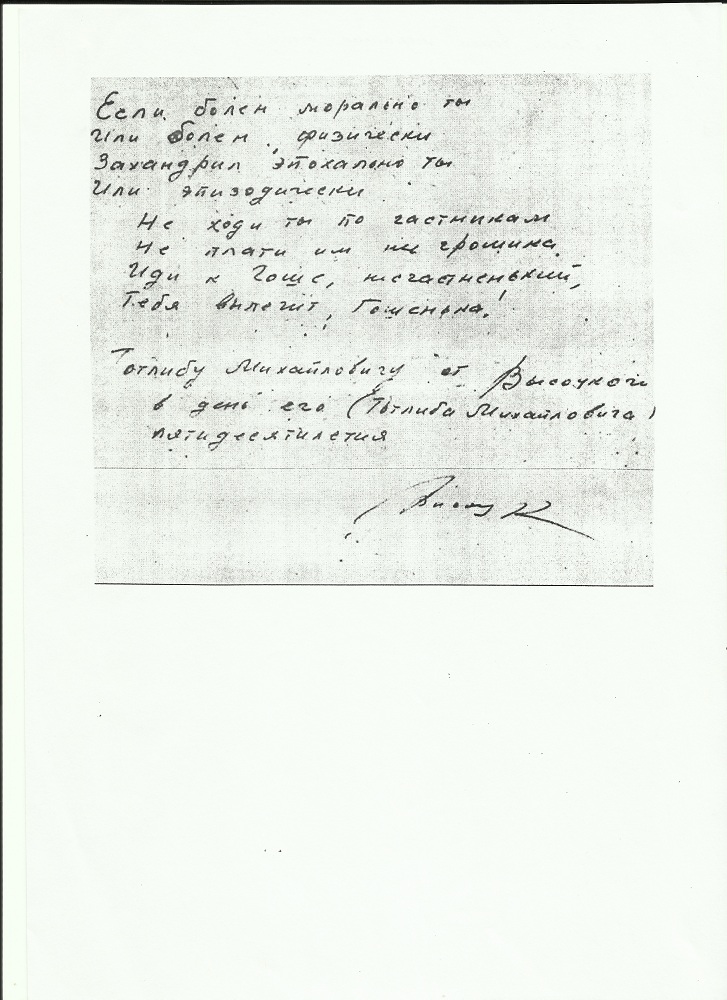 Если болен морально ты
Или болен физически
Захандрил эпохально ты
Или эпизодически
Не ходи ты по частникам
Не плати им ни грошика
Иди к Гоше, несчастненький,
Тебя вылечит, Гошенька!
Готлибу Михайловичу от Высоцкого
в день его (Готлиба Михайловича)
пятидесятилетия